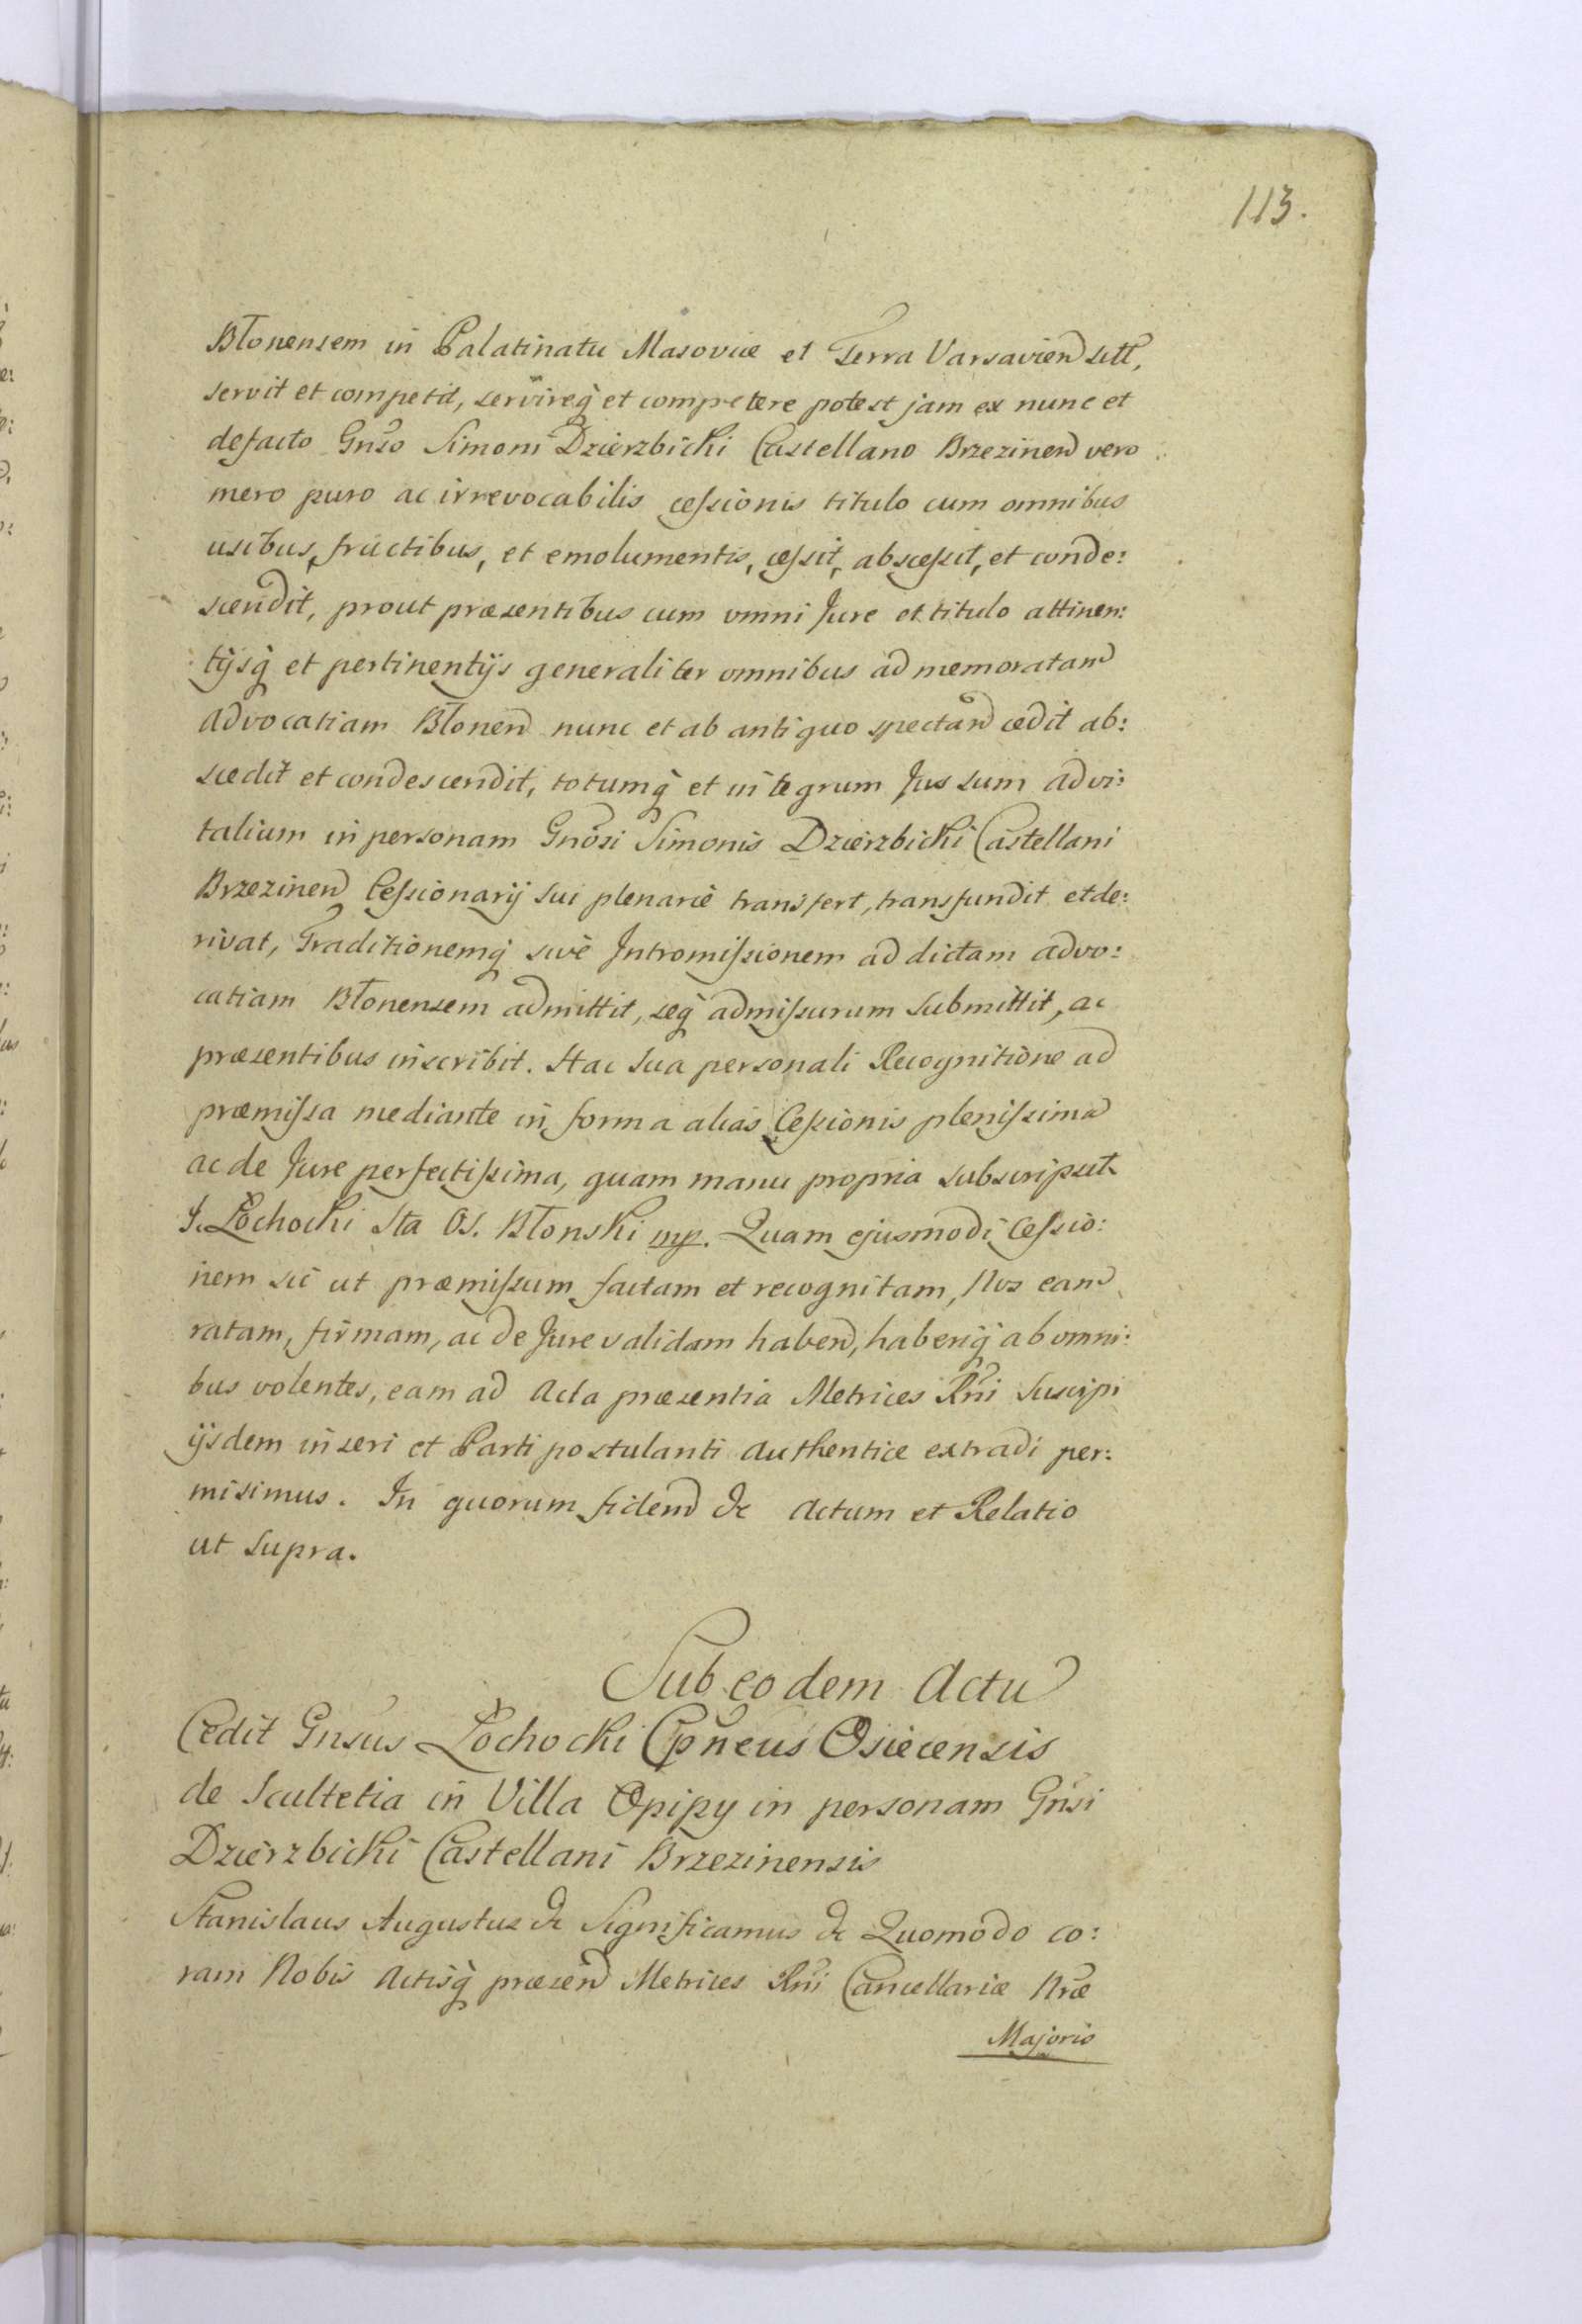 113.
Błonensem in Palatinatu Masoviæ et Terra Varsavien sitt,
servit et competit, servireq̃ et competere potest jam ex nunc et
defacto Gnso Simoni Dzierzbicki Castellano Brzezinen vero
mero puro ac irrevocabilis cessionis titulo cum omnibus
usibus, fructibus, et emolumentis, cessit, abscessit, et conde:
scendit, prout præsentibus cum omni Jure et titulo attinen:
tijsq̃ et pertinentijs generaliter omnibus ad memoratam
Advocatiam Błonen nunc et ab antiquo spectan cedit ab:
scedit et condescendit, totumq̃ et integrum Jus sum advi:
talium in personam Gnosi Simonis Dzierzbicki Castellani
Brzezinen Cessionarij Sui plenariè transfert, transfundit et de:
rivat, Traditionemq̃ sivè Intromissionem ad dictam advo:
catiam Błonensem admittit, seq̃ admissurum submittit, ac
præsentibus inscribit. Hac Sua personali Recognitione ad
præmissa mediante in forma alias Cessionis plenissima
ac de Jure perfectissima, quam manu propria subscripsit
J. Łochocki Sta Os. Błonski mp. Quam ejusmodi Cessio:
nem sic ut præmissum factam et recognitam, Nos eam
ratam, firmam, ac de Jure validam haben, haberiq̃ ab omni:
bus volentes, eam ad Acta præsentia Metrices Rni Suscipi
ijsdem inseri et Parti postulanti authentice extradi per:
misimus. In quorum fidem &c Actum et Relatio
ut supra.
Sub eodem Actu
Cedit Gnsus Łochocki Cpneus Osiecensis
de Scultetia in Villa Opipy in personam Gnsi
Dzierzbicki Castellani Brzezinensis
Stanislaus Augustus &c Significamus &c Quomodo co:
ram Nobis Actisq̃ præsen Metrices Rni Cancellariæ Nræ
Majoris